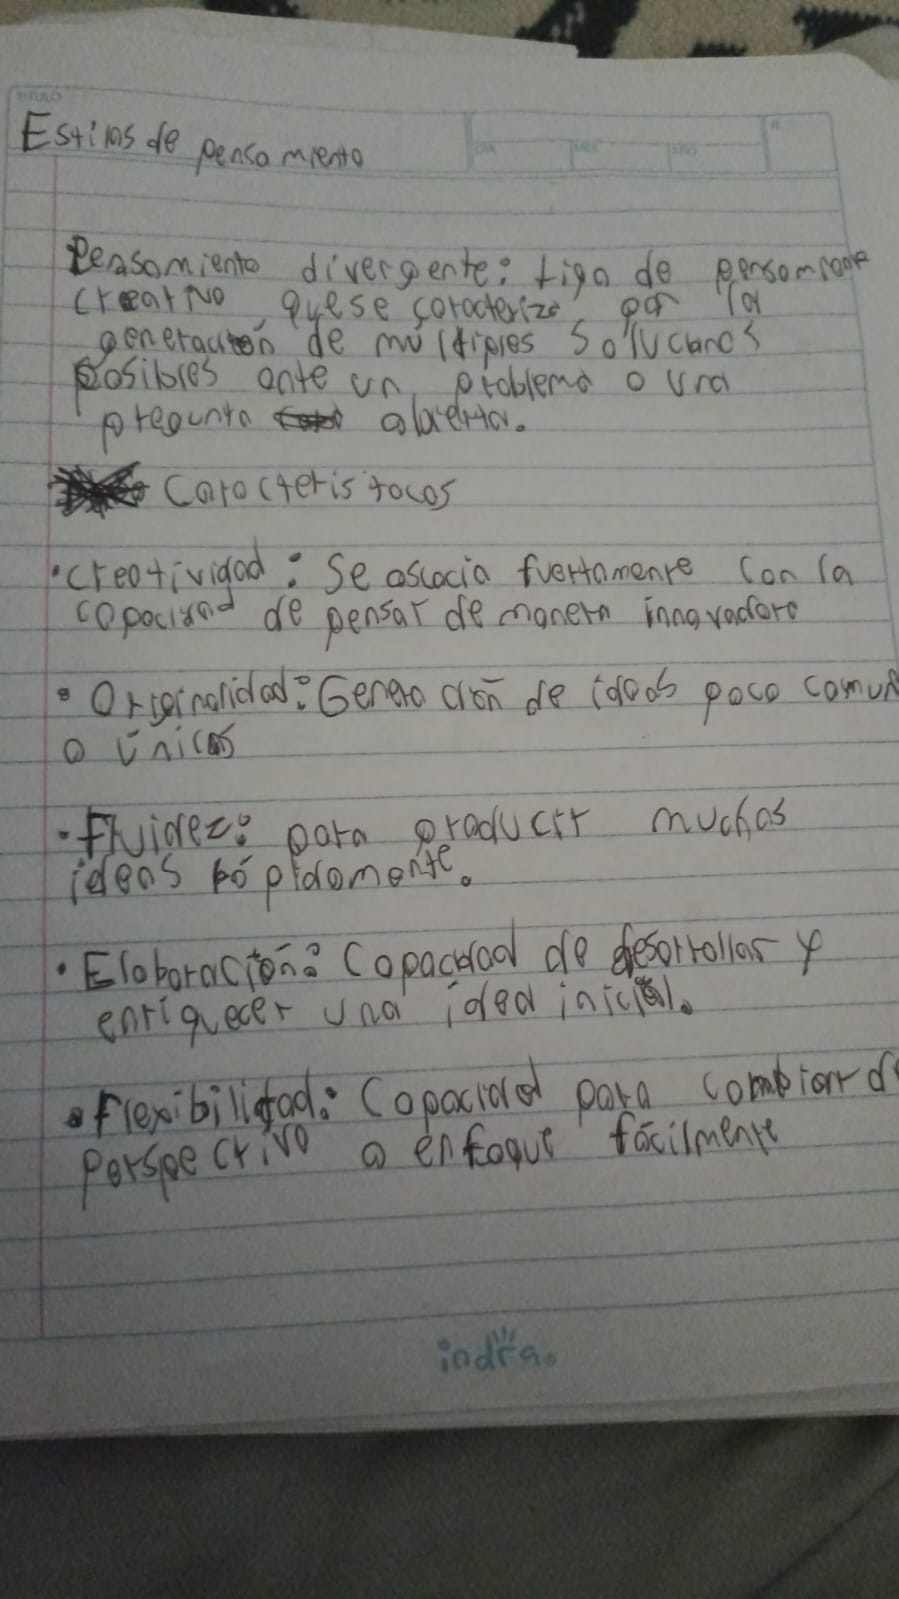 TITULO
Estilos de pensamiento
DIA MES AÑO
Pensamiento divergente: tipo de pensamiento
creativo que se caracteriza por la
generación de múltiples soluciones
posibles ante un problema o una
pregunta abierta.
Caracteristocas
• Creatividad: Se asocia fuertamente con la
capacidad de pensar de manera innovadora
• Originalidad: Generación de ideas poco comun
o únicas
• Fluidez: para producir muchas
ideas rápidamente.
• Elaboración: Capacidad de desarrollar y
enriquecer una idea inicial.
• Flexibilidad: Capacidad para cambiar d
perspectiva o enfoque fácilmente
indra.